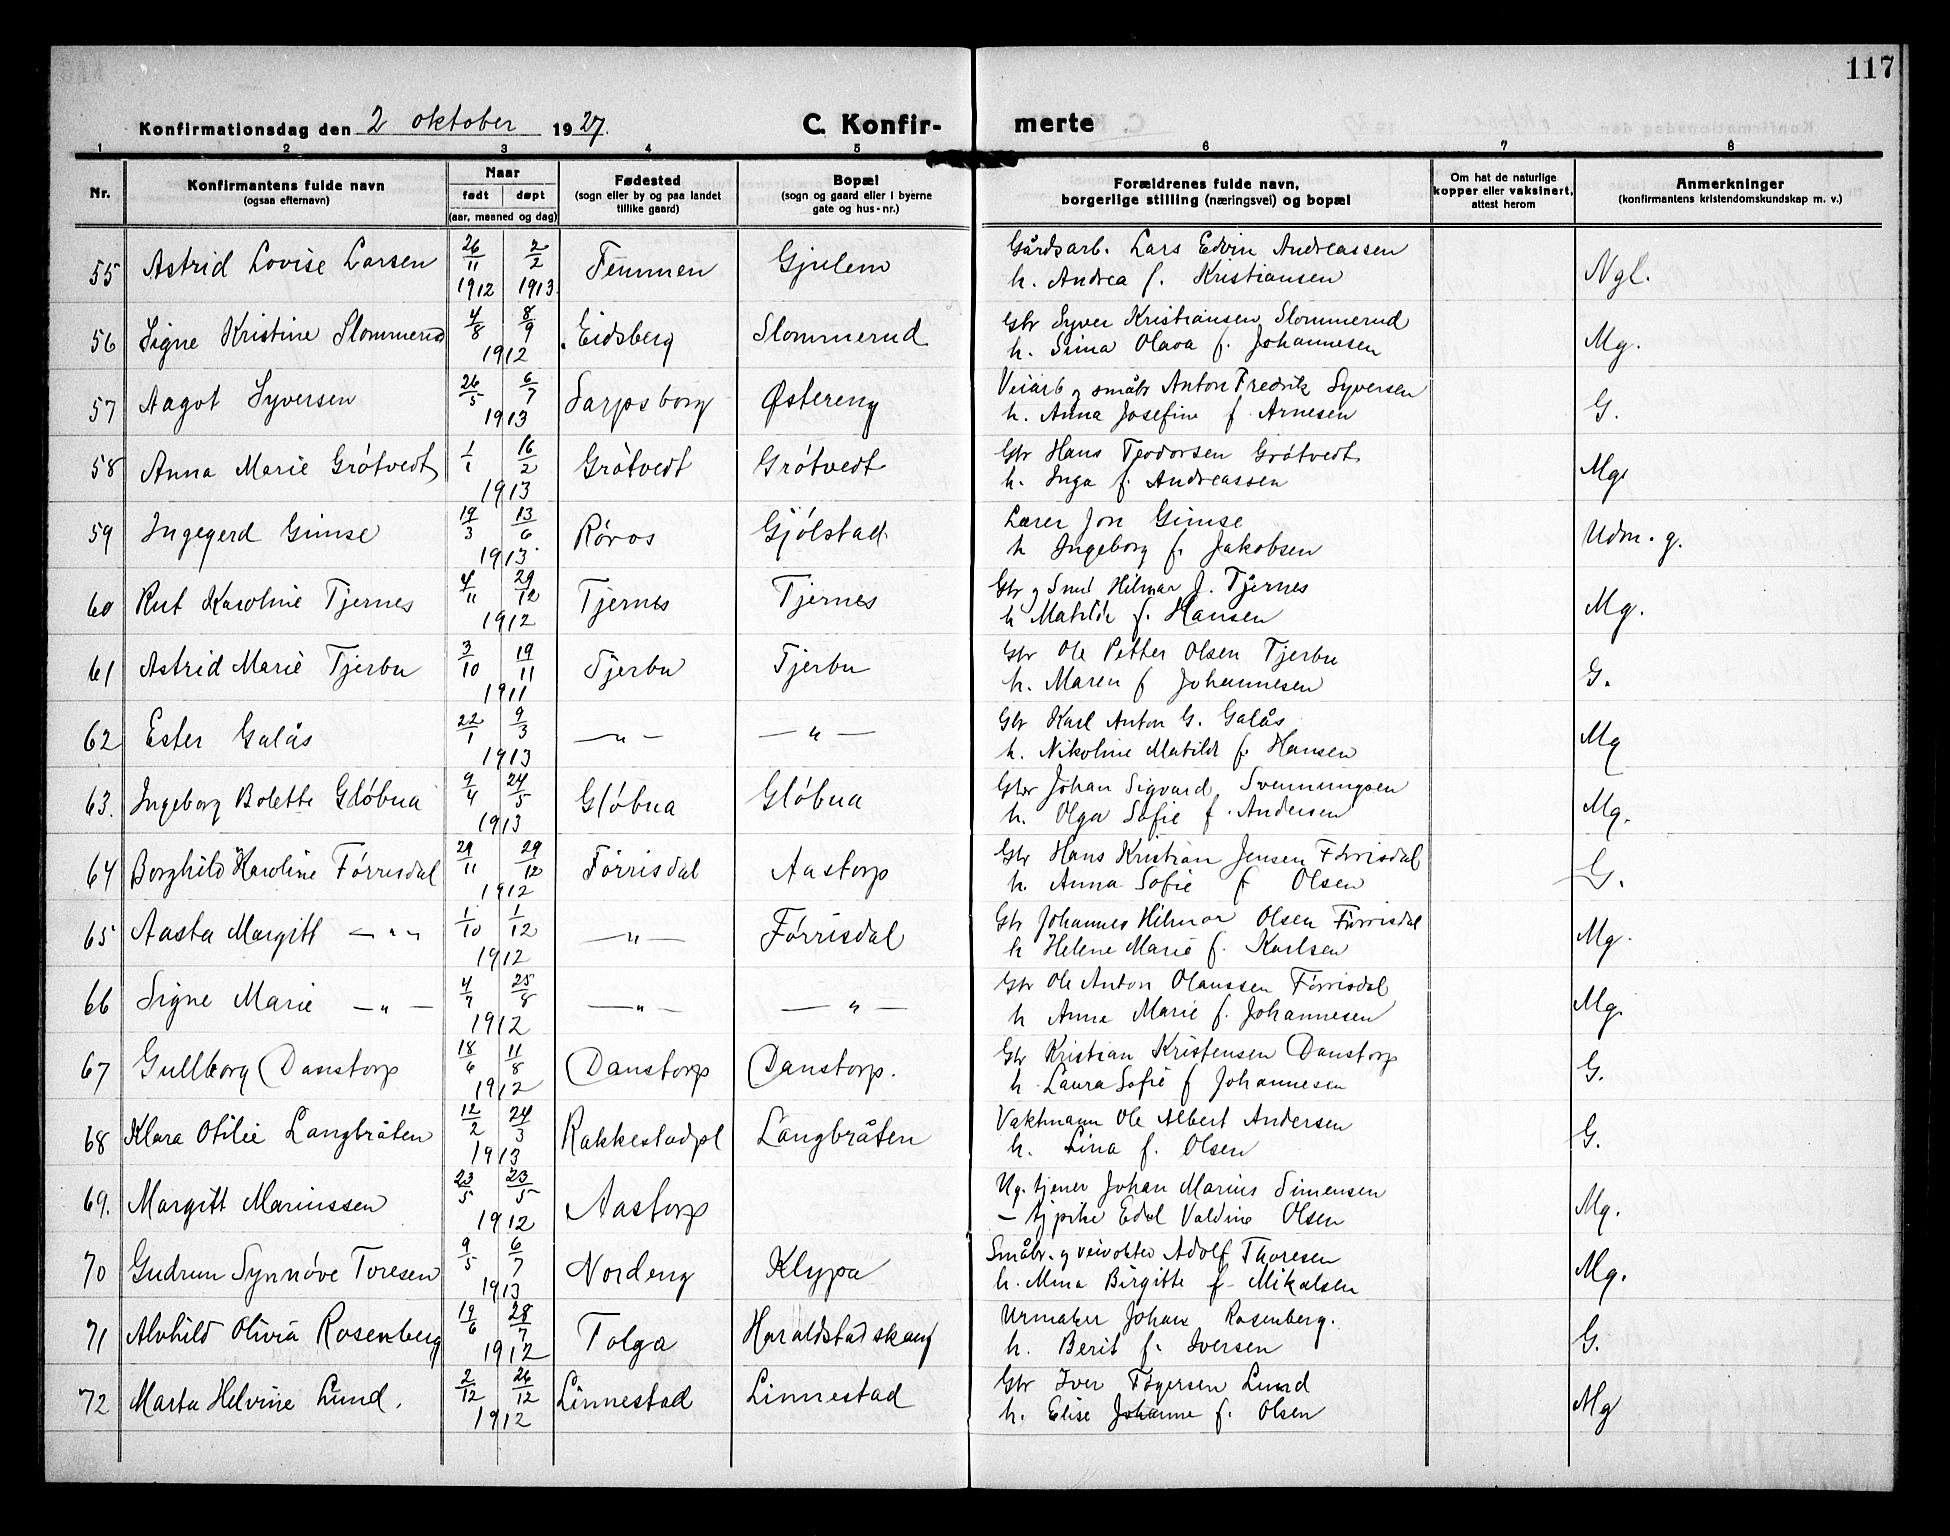 117
Konfirmationsdag den 2 oktober 1927. C. Konfir- merte
1 2 3 4 5 6 7 8
Nr. Konfirmantens fulde navn (ogsaa efternavn) Naar født døpt (aar, maaned og dag) Fødested (sogn eller by og paa landet tillike gaard) Bopæl (sogn og gaard eller i byerne gate og hus-nr.) Forældrenes fulde navn, borgerlige stilling (næringsvei) og bopæl Om hat de naturlige kopper eller vaksinert, attest herom Anmerkninger (konfirmantens kristendomskundskap m. v.)
55 Astrid Lovise Larsen 26/11 1912 2/2 1913. Temmen Gjulem Gårdsarb. Lars Edvin Andreassen Ngl.
h. Andrea f. Kristiansen
56 Signe Kristine Slommerud 4/8 8/9 1912 Eidsberg Slommerud Gbr Syver Kristiansen Slommerud Mg.
h. Olava f. Johannesen
57 Aagot Syversen 26/5 6/7 1913 Sarpsborg Østereng Veiarb og småbr Anton Fredrik Syversen G.
h. Anna Josefine f. Arnesen
58 Anna Marie Grótvedt 1/1 16/2 1913 Grótvedt Grótvedt Gbr Hans Teodorsen Grótvedt Mg
h. Inga f. Andreassen
59 Ingegerd Gimse 19/3 13/6 1913 Róros Gjólstad Lærer Jon Gimse Udm. g.
h Ingeborg f. Jakobsen
60 Rut Karoline Tjernes 4/11 29/12 1912 Tjernes Tjernes Gbr og Smed Hilmar J. Tjernes Mg.
h Matilde f. Hansen
61 Astrid Marie Tjerbu 3/10 19/11 1911 Tjerbu Tjerbu Gbr Ole Petter Olsen Tjerbu G.
h. Maren f Johannesen
62 Ester Galås 22/1 9/3 1913 — " — — " — Gbr Karl Anton G. Galås Mg
h. Nikoline Matilde f. Hansen
63. Ingeborg Bolette Glóbua 9/4 24/5 1913 Glóbua Glóbua Gbr Johan Sigvard Svenningsen Mg.
h. Olga Sofie f. Andersen
64 Borghild Karoline Fórrisdal 29/11 29/12 1912 Fórrisdal Aastorp Gbr Hans Kristian Jensen Fórrisdal G.
h. Anna Sofie f Olsen
65 Aasta Margitt — " — 1/10 1/12 1912 — " — Fórrisdal Gbr Johannes Hilmar Olsen Fórrisdal Mg.
h Helene Marie f. Karlsen
66 Signe Marie — " — 4/7 25/8 1912 — " — — " — Gbr Ole Anton Olaussen Fórrisdal Mg.
h Anna Marie f. Johannesen
67 Gullborg Danstorp 18/6 11/8 1912 Danstorp Danstorp. Gbr Kristian Kristensen Danstorp G.
h. Laura Sofie f Johannesen
68 Klara Otilie Langbråten 12/2 24/3 1913 Rakkestadpl Langbråten Vaktmann Ole Albert Andersen G.
h. Lina f. Olsen
69. Margitt Mariussen 23/5 23/5 1912 Aastorp Ug. tjener Johan Marius Simensen Mg.
— Edel Valdine Olsen
70 Gudrun Synnóve Toresen 9/5 6/7 1913 Nordeng Klypa Småbr. og veivokter Adolf Thoresen Mg.
h. Mina Birgitte f. Mikalsen
71 Alvhild Olivia Rosenberg 19/6 28/7 1912 Tolga Haraldstadskaug Urmaker Johan Rosenberg. G.
h. Berit f. Iversen
72 Marta Helvine Lund. 2/12 26/12 1912 Linnestad Linnestad Gbr Iver Tógersen Lund Mg
h. Elise Johanne f. Olsen